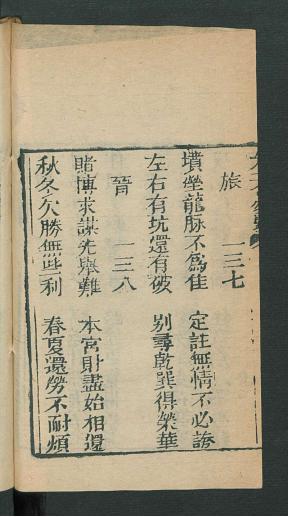 旅 一三七
墳塋龍脉不爲佳 定註無情不必誇
左右有坑還有破 别尋乾巽得榮華
晉 一三八
賭博求謀先舉難 本宮財盡始相還
秋冬欠勝無些利 春夏還勞不耐煩